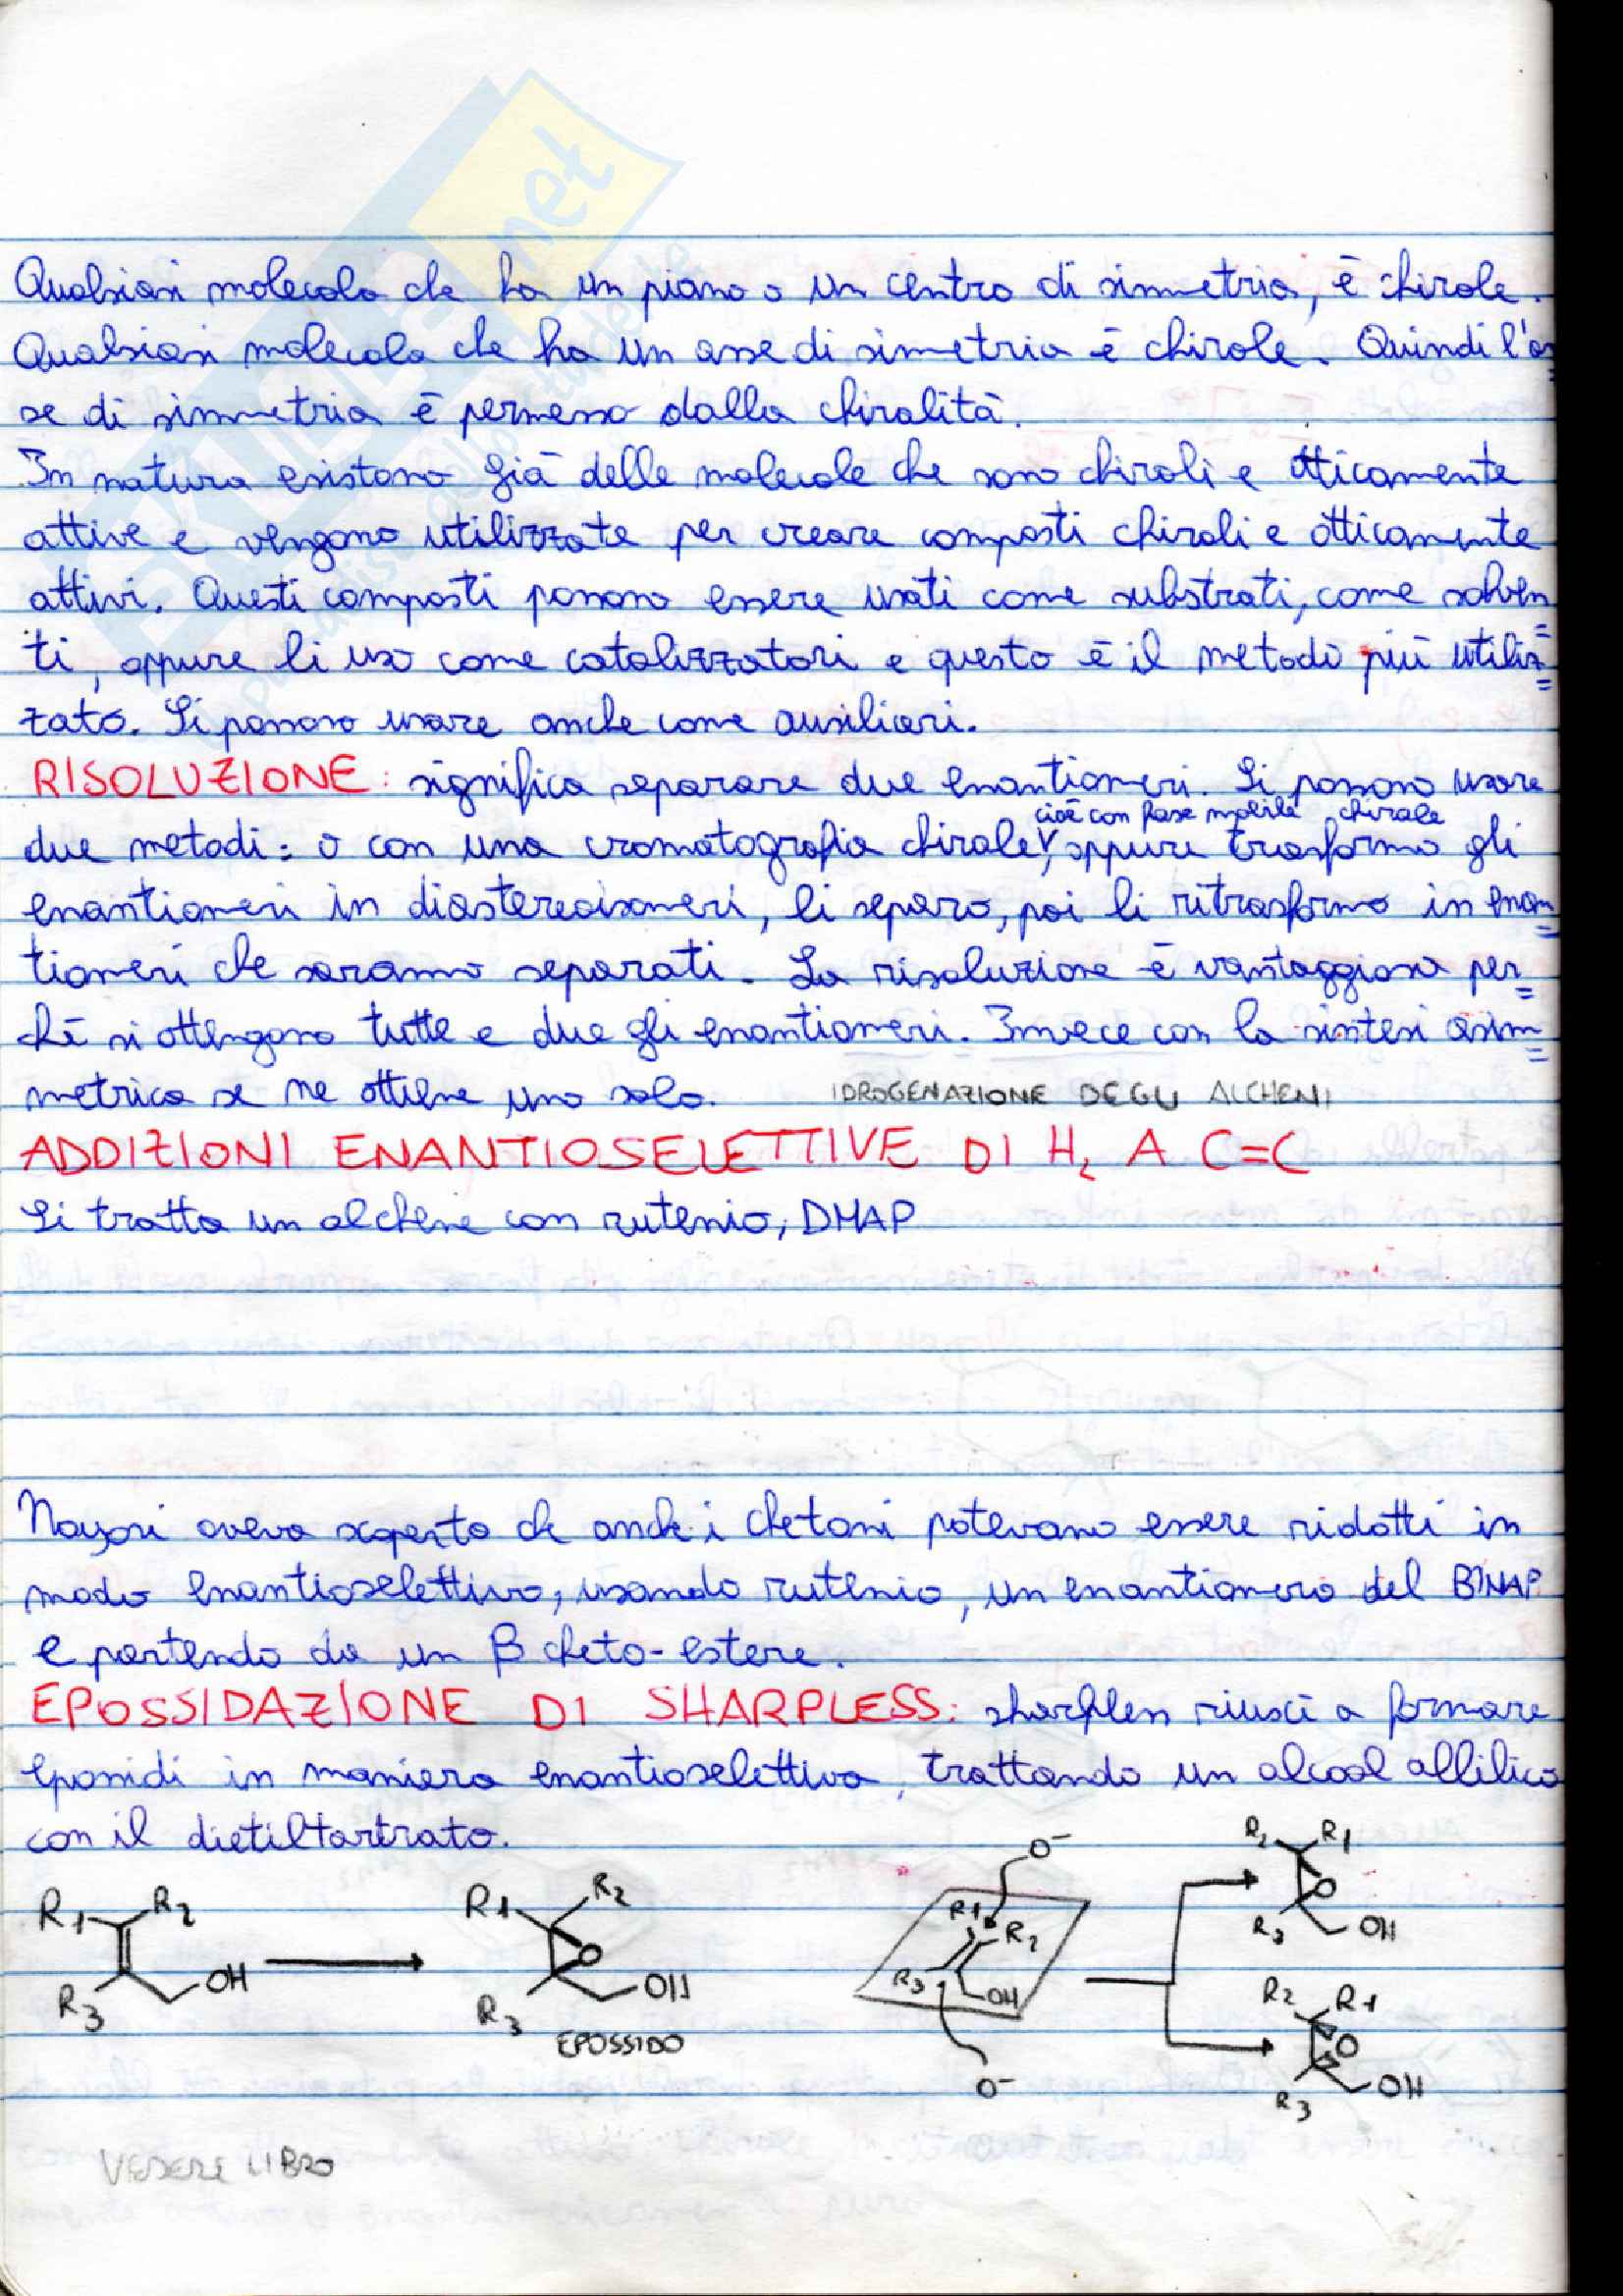 Qualsiasi molecola che ha un piano o un centro di simmetria, è chirale.
Qualsiasi molecola che ha un asse di simmetria è chirale. Quindi l'as
se di simmetria è permesso dalla chiralità.
In natura esistono già delle molecole che sono chirali e otticamente
attive e vengono utilizzate per creare composti chirali e otticamente
attivi. Questi composti possono essere usati come substrati, come solven
ti, oppure li uso come catalizzatori e questo è il metodo più utiliz
zato. Si possono usare anche come ausiliari.
RISOLUZIONE: significa separare due enantiomeri. Si possono usare
cioè con fase mobile chirale
due metodi: o con una cromatografia chirale, oppure trasformo gli
enantiomeri in diastereoisomeri, li separo, poi li ritrasformo in enan
tiomeri che saranno separati. La risoluzione è vantaggiosa per
chè si ottengono tutte e due gli enantiomeri. Invece con la sintesi asim
metrica se ne ottiene uno solo. IDROGENAZIONE DEGLI ALCHENI
ADDIZIONI ENANTIOSELETTIVE DI H2 A C=C
Si tratta un alchene con rutenio, DMAP
Noyori aveva scoperto che anche i chetoni potevano essere ridotti in
modo enantioselettivo, usando rutenio, un enantiomero del BINAP
e partendo da un β cheto-estere.
EPOSSIDAZIONE DI SHARPLESS: sharpless riuscì a formare
epossidi in maniera enantioselettiva, trattando un alcool allilico
con il dietiltartrato.
R1 R2 R3 OH
R1 R2 O R3 OH
EPOSSIDO
O⁻ R1 R2 R3 OH O⁻
R2 R1 O R3 OH
R2 R1 O R3 OH
VEDERE LIBRO
SKUOLA.net